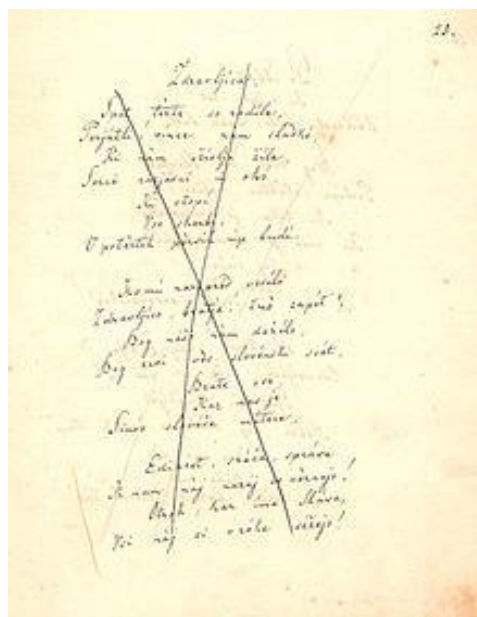 20.
Zdravljica.
Spet terte so rodile,
Prijatli, vince nam sladkó,
Ki nam oživlja žile,
Sercé razjasni in okó,
Ki utopi
Vse skerbi,
V potertih persih up budi.
Komú narpred veselo
Zdravljico, bratje! čmo zapét'?
Bog našo nam deželo,
Bog živi ves slovénski svét,
Brate vse,
Kar nas je
Sinóv slovéče mátere.
Edinost, sreča, sprava
K nam naj nazaj se vernejo!
Otrók, kar ima Slava,
Vsi naj si v róke sežejo!